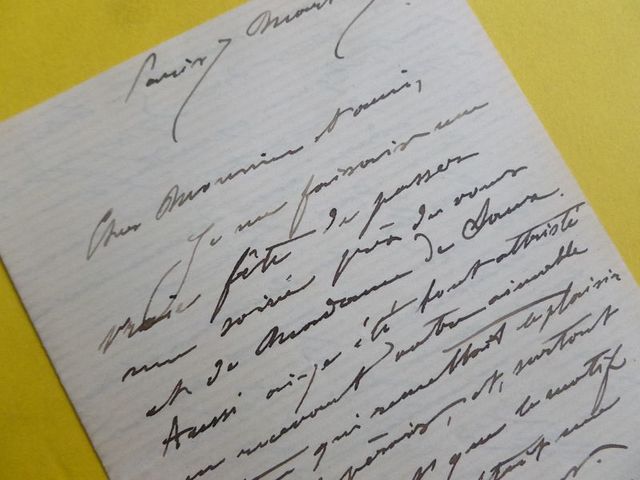 Paris 7 Mars
Cher Monsieur et ami,
Je me faisais une
vraie fête de passer
une soirée près de vous
et de Madame de
Aussi ai-je été tout attristé
en recevant votre aimable
qui remettait le plaisir
et, surtout
que le motif
une